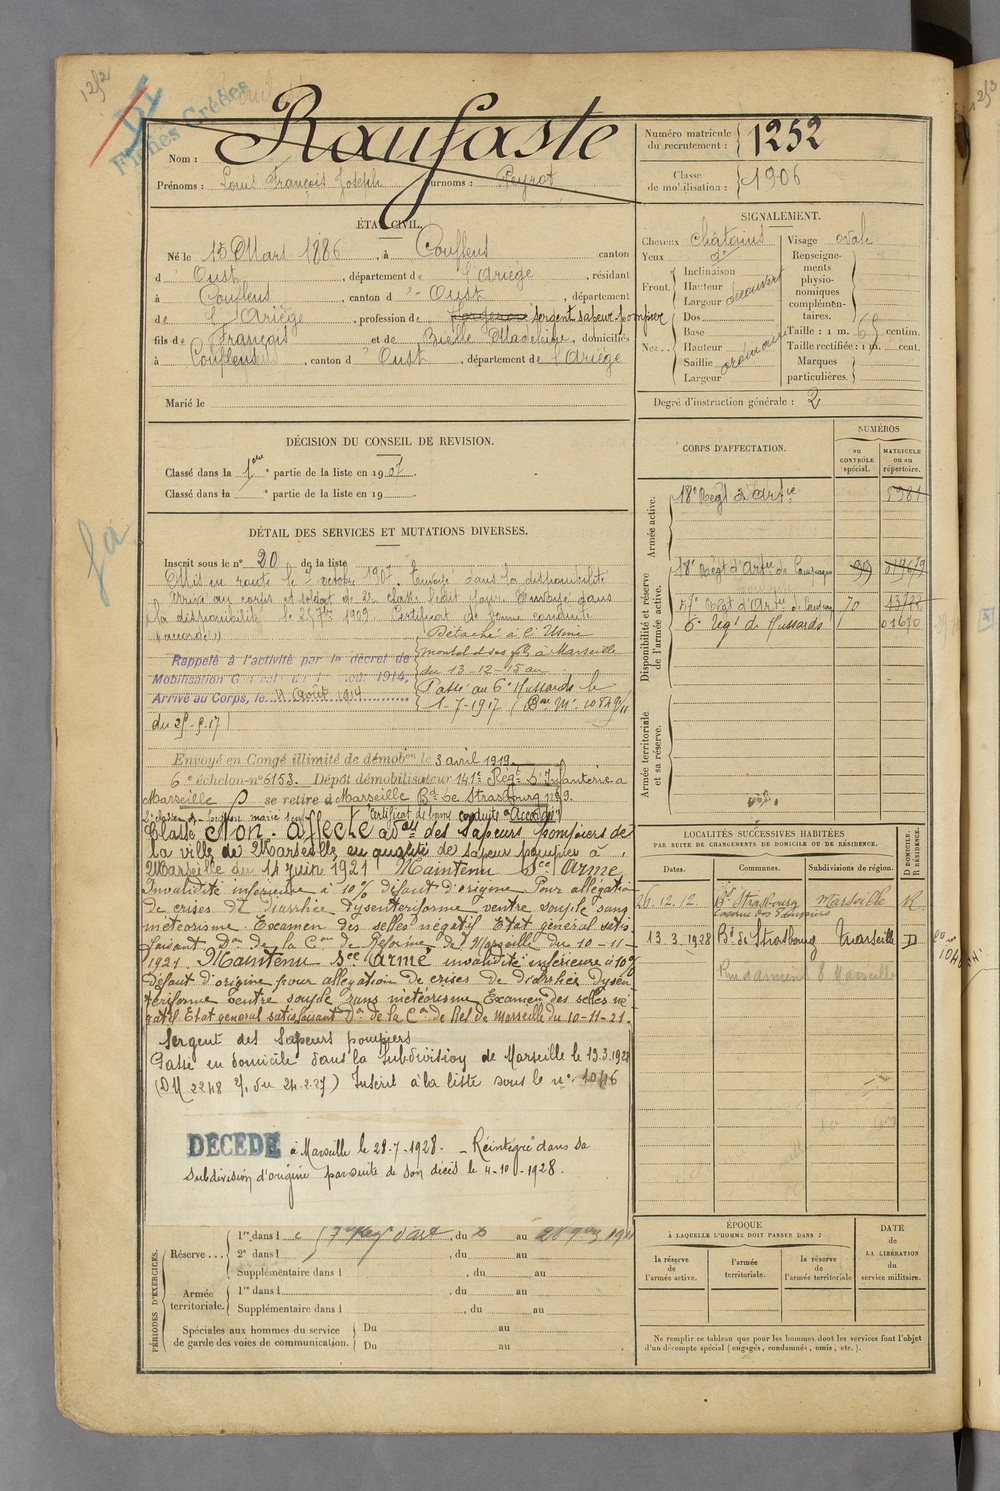 1252
Fiches Créées
Nom : Raufaste
Prénoms : Louis François Joseph Surnoms : Peyrot
Numéro matricule du recrutement : 1252
Classe de mobilisation : 1906
ÉTAT CIVIL.
Né le 15 Mars 1886, à Couflens canton
d'Oust, département de l'Ariège, résidant
à Couflens, canton d'Oust, département
de l'Ariège, profession de sergent sapeur-pompier
fils de François et de Bielle Madeleine, domiciliés
à Couflens, canton d'Oust, département de l'Ariège
Marié le
SIGNALEMENT.
Cheveux châtains
Yeux do
Front. Inclinaison
Hauteur
Largeur découvert
Nez. Dos
Base
Hauteur
Saillie ordinaire
Largeur
Visage ovale
Renseignements physionomiques complémentaires.
Taille : 1 m. 65 centim.
Taille rectifiée : 1 m. cent.
Marques particulières.
Degré d'instruction générale : 2
DÉCISION DU CONSEIL DE REVISION.
Classé dans la 1ère partie de la liste en 1907
Classé dans la e partie de la liste en 19
CORPS D'AFFECTATION.
NUMÉROS
au CONTRÔLE spécial.
MATRICULE ou au répertoire.
Armée active.
18e Régt d'Artie 5981
Disponibilité et réserve de l'armée active.
18e Régt d'Artie de Campagne 99
57e Régt d'Artie de Campagne 70
6e Régt de Hussards 1 01670
Armée territoriale et sa réserve.
DÉTAIL DES SERVICES ET MUTATIONS DIVERSES.
Inscrit sous le no 20 de la liste
Mis en route le 7 octobre 1907. Envoyé dans la disponibilité
Arrivé au corps et soldat de 2e classe ledit jour. Envoyé dans
la disponibilité le 25 7bre 1909. Certificat de bonne conduite
"accordé"
Rappelé à l'activité par le décret de
Mobilisation Générale du 1 août 1914,
Arrivé au Corps, le 4 Août 1914
Détaché à l'Usine
à Marseille
du 13-12-15 au
Passé au 6e Hussards le
1-7-1917
du 25-9-17
Envoyé en Congé illimité de démobon le 3 avril 1919.
6e échelon-no 6153. Dépôt démobilisateur 141e Régt d'Infanterie à
Marseille se retire à Marseille Bd de Strasbourg no 9.
Certificat de bonne conduite "Accordé"
Classé Non-affecté aux des Sapeurs pompiers de
la ville de Marseille en qualité de sapeur pompier à
Marseille du 14 juin 1921 Maintenu Sce Armé
Invalidité inférieure à 10% défaut d'origine Pour allégation
de crises de diarrhée dysentériforme ventre souple sans
météorisme. Examen des selles négatif Etat général satis
faisant Don de la Con de Réforme de Marseille du 10-11-
1921. Maintenu Sce Armé invalidité inférieure à 10%
Défaut d'origine pour allégation de crises de diarrhée Dysen
tériforme ventre souple sans météorisme Examen des selles né
gatif. Etat général satisfaisant Don de la Con de Ref de Marseille du 10-11-21.
Sergent des Sapeurs pompiers
Passé en domicile dans la subdivision de Marseille le 13.3.1928
(DM 2248 du 24.2.27) Inscrit à la liste sous le no 10416
DÉCÉDÉ à Marseille le 29-7-1928. - Réintégré dans sa
subdivision d'origine par suite de son décès le 4-10-1928.
LOCALITÉS SUCCESSIVES HABITÉES
PAR SUITE DE CHANGEMENTS DE DOMICILE OU DE RÉSIDENCE.
Dates. Communes. Subdivisions de région. D DOMICILE. R RÉSIDENCE.
26.12.12 Bd Strasbourg Marseille R
Caserne des Pompiers
13.3.1928 Bd de Strasbourg Marseille D
8 Marseille
PÉRIODES D'EXERCICES.
Réserve
1re dans l , du au
2e dans l , du au
Supplémentaire dans l , du au
Armée territoriale.
1re dans l , du au
Supplémentaire dans l , du au
Spéciales aux hommes du service de garde des voies de communication.
Du au
Du au
ÉPOQUE
À LAQUELLE L'HOMME DOIT PASSER DANS :
la réserve de l'armée active.
l'armée territoriale.
la réserve de l'armée territoriale
DATE DE LA LIBÉRATION du service militaire.
Ne remplir ce tableau que pour les hommes dont les services font l'objet
d'un décompte spécial (engagés, condamnés, omis, etc.).